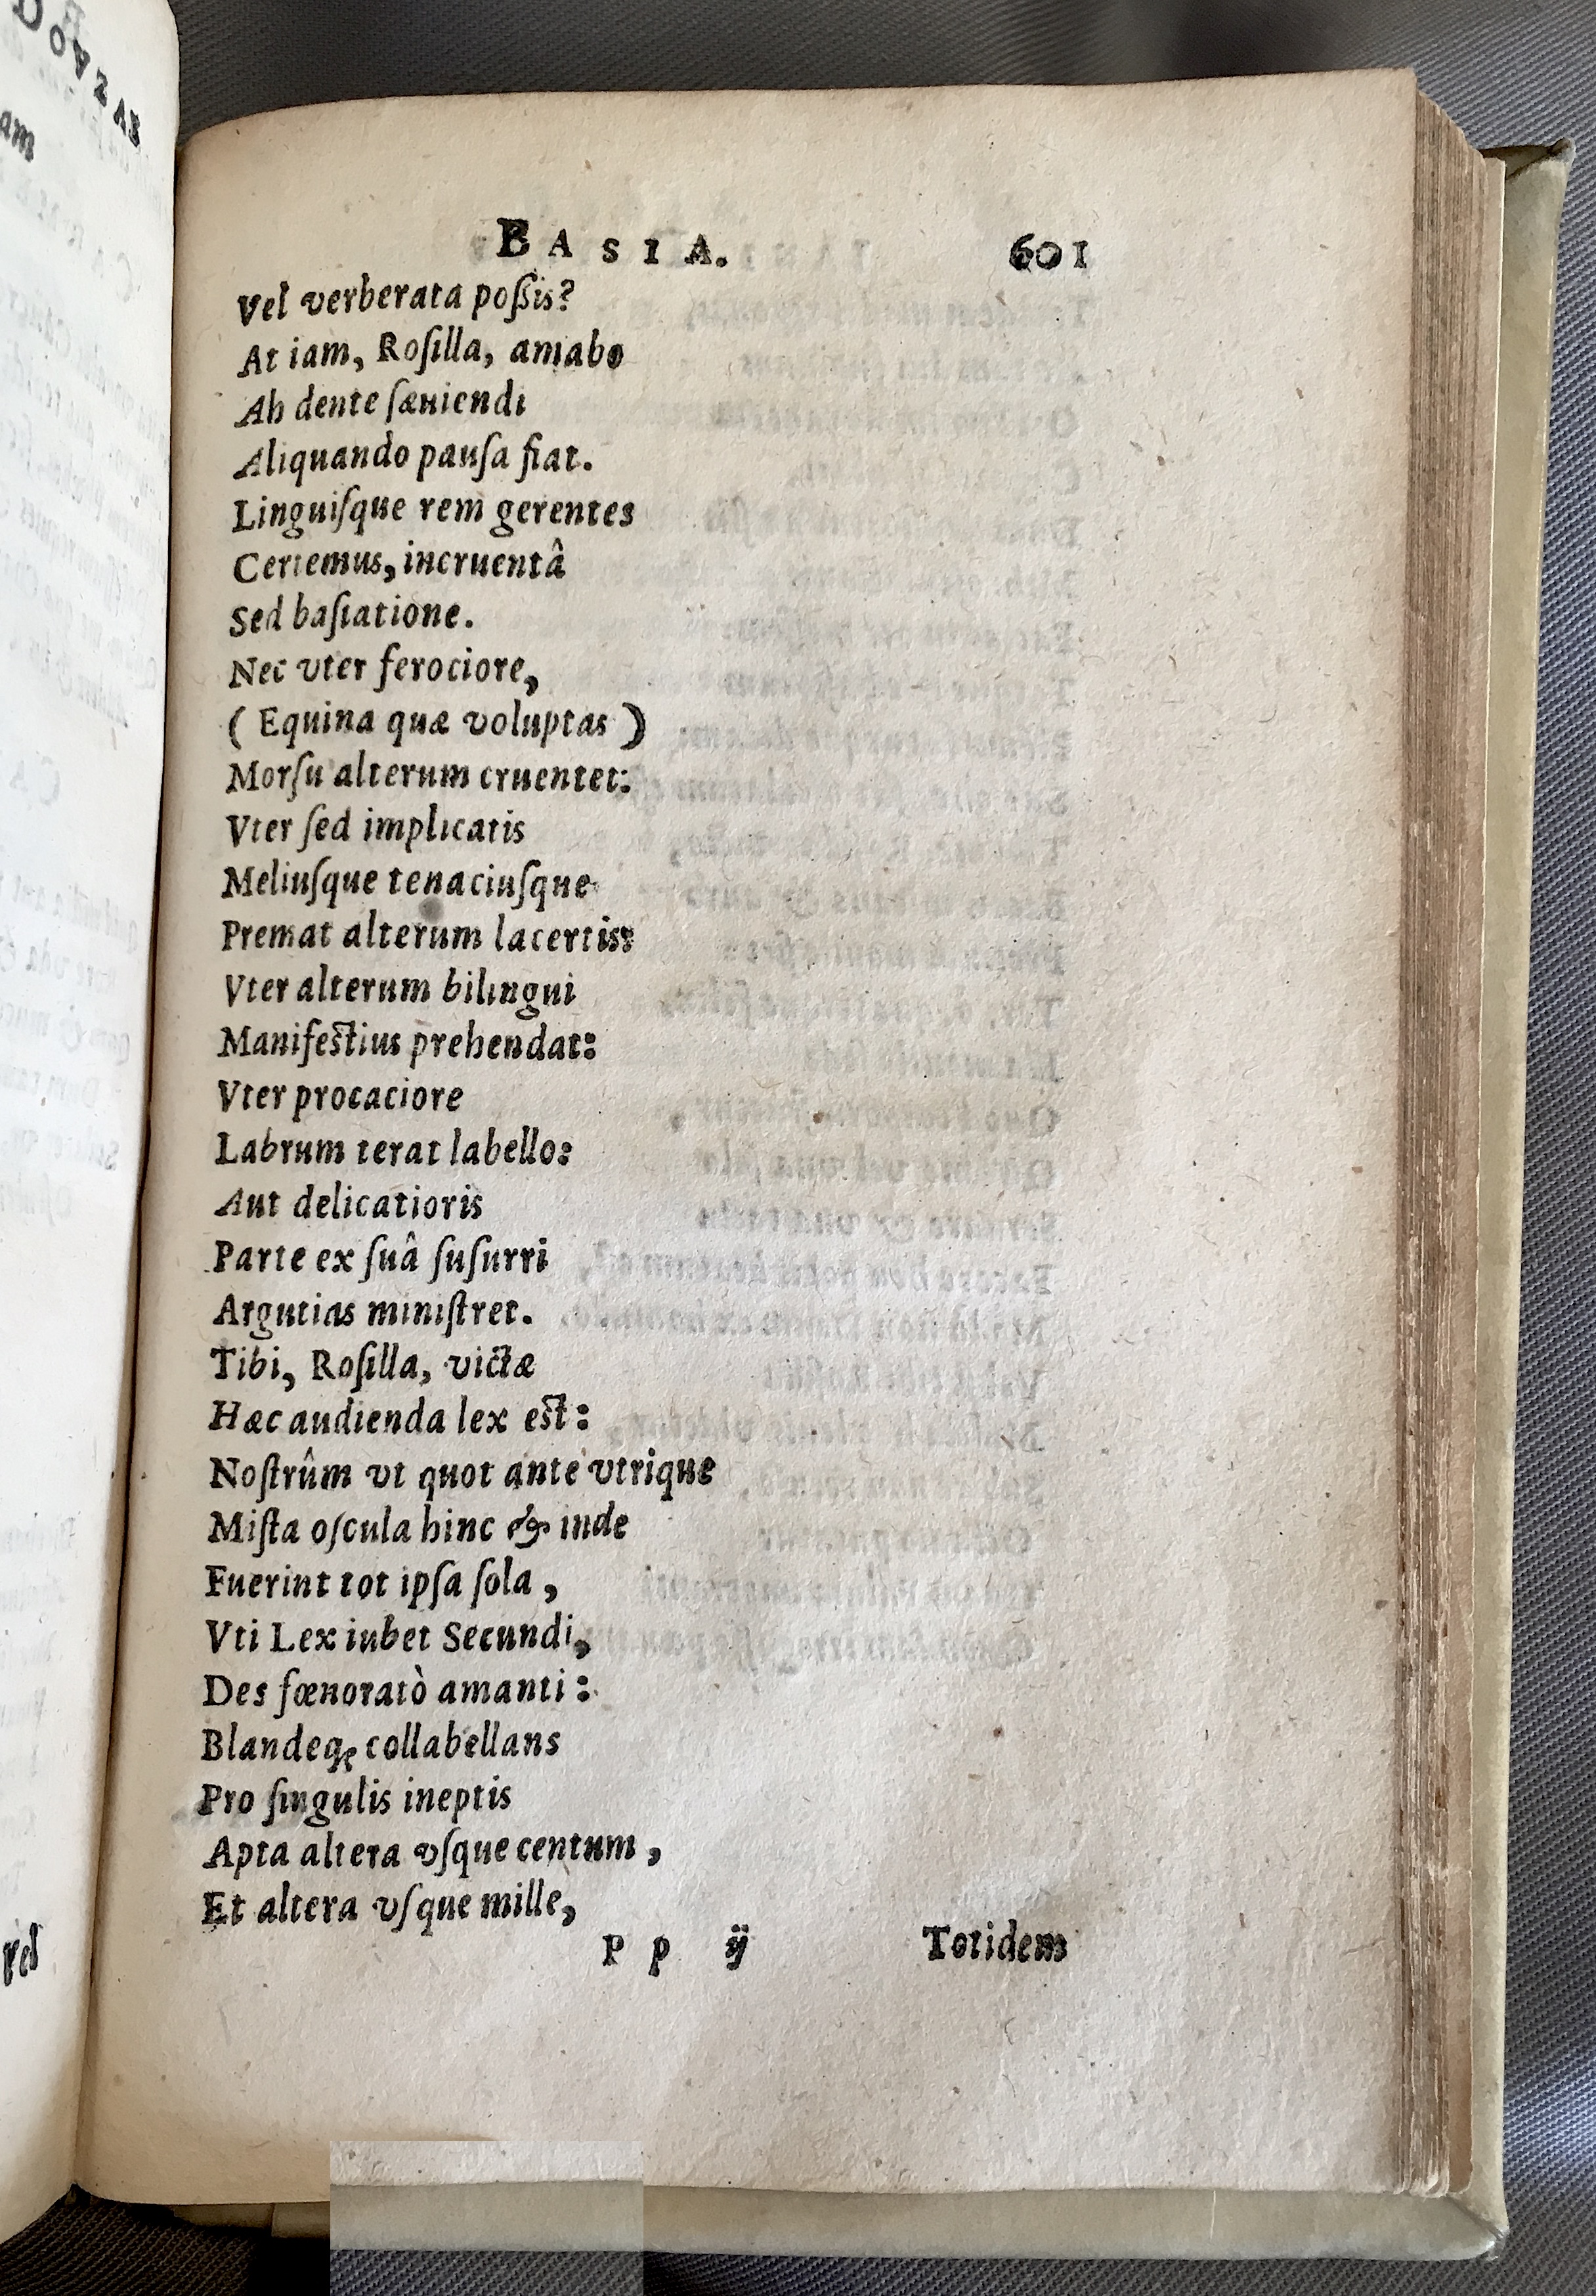 BASIA. 601
Vel verberata poßis?
At iam, Roſilla, amabo
Ab dente ſæuiendi
Aliquando pauſa fiat.
Linguiſque rem gerentes
Certemus, incruentâ
Sed baſiatione.
Nec vter ferociore,
( Equina quæ voluptas )
Morſu alterum cruentet:
Vter ſed implicatis
Meliuſque tenaciuſque
Premat alterum lacertis:
Vter alterum bilingui
Manifeſtius prehendat:
Vter procaciore
Labrum terat labello:
Aut delicatioris
Parte ex ſuâ ſuſurri
Argutias miniſtret.
Tibi, Roſilla, victæ
Hæc audienda lex eſt:
Noſtrûm vt quot ante vtrique
Miſta oſcula hinc & inde
Fuerint tot ipſa ſola,
Vti Lex iubet Secundi,
Des fœnoratò amanti:
Blandeq; collabellans
Pro ſingulis ineptis
Apta altera vſque centum,
Et altera vſque mille,
P p ij Totidem
am
Vel